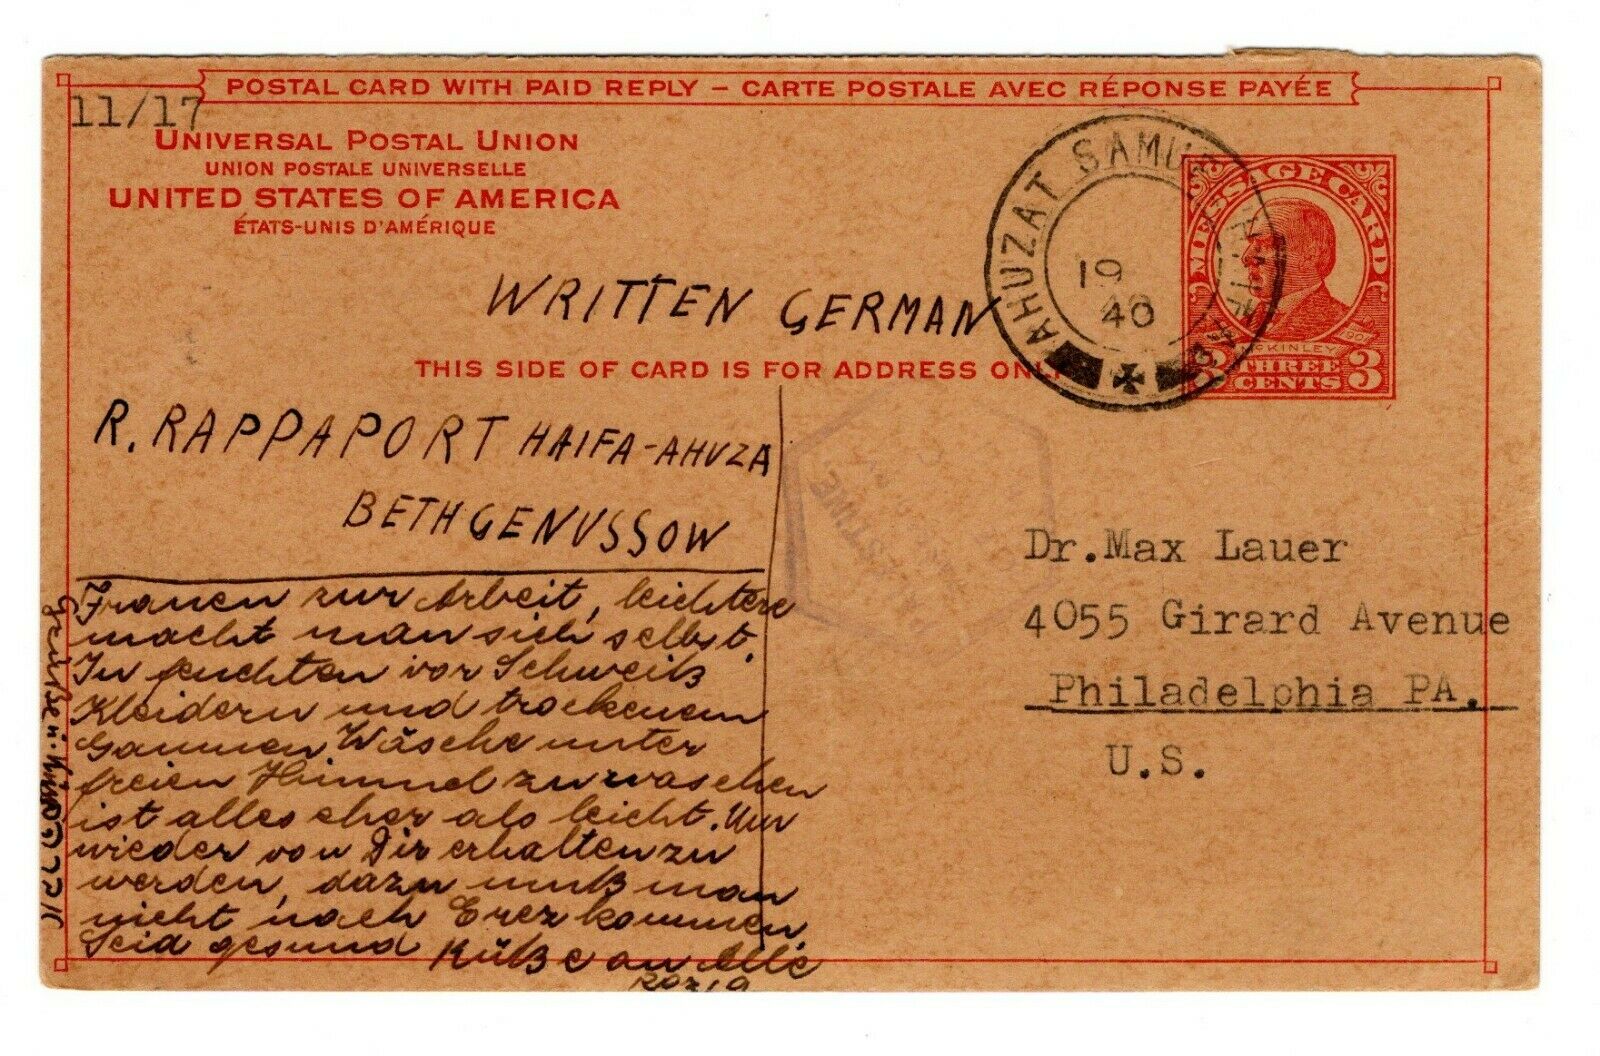 POSTAL CARD WITH PAID REPLY – CARTE POSTALE AVEC RÉPONSE PAYÉE
11/17
UNIVERSAL POSTAL UNION
UNION POSTALE UNIVERSELLE
UNITED STATES OF AMERICA
ÉTATS-UNIS D'AMÉRIQUE
AHUZAT SAMUEL HAIFA
19
40
MESSAGE CARD
McKINLEY
1901
3 THREE CENTS 3
WRITTEN GERMAN
THIS SIDE OF CARD IS FOR ADDRESS ONLY
R. RAPPAPORT HAIFA-AHUZA
BETH GENUSSOW
PALESTINE
Dr.Max Lauer
4055 Girard Avenue
Philadelphia PA.
U.S.
Frauen zur Arbeit, leichtere
macht man sich selbst.
In feuchten vor Schweiß
Kleidern und trockenem
Gaumen Wäsche unter
freien Himmel zu waschen
ist alles eher als leicht. Um
wieder von Dir erhalten zu
werden, dazu muß man
nicht nach Erez kommen.
Seid gesund Küße an Alle
Rozia
Grüße u.